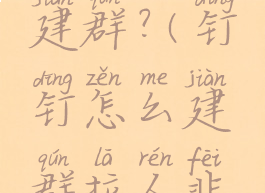 建群?(钉
dīng zěn me jiàn
钉怎么建
qún lā rén fēi
群拉人非